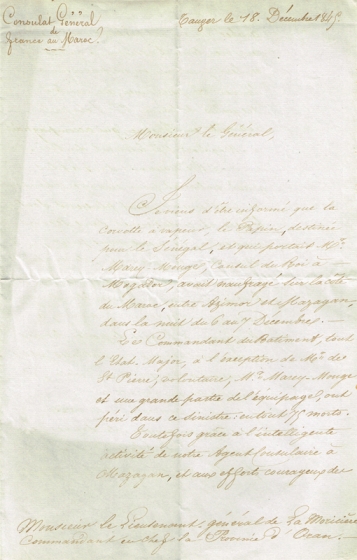 Consulat Général
de
France au Maroc.
Tanger le 18. Décembre 1845
Monsieur le Général,
Je viens d'être informé que la
corvette à vapeur, le Papin, destinée
pour le Sénégal, et qui portait Mr.
Marey Monge, Consul du Roi à
Mogador, avait naufragé sur la côte
du Maroc, entre Azimor et Mazagan,
dans la nuit du 6 au 7 Décembre. —
Le Commandant du Bâtiment, tout
l'Etat Major, à l'exception de Mr. de
St. Pierre, volontaire, Mr. Marey-Monge
et une grande partie de l'équipage, ont
péri dans ce sinistre: en tout 75 morts.
Toutefois grâce à l'intelligente
activité de notre Agent Consulaire à
Mazagan, et aux efforts courageux de
Monsieur le Lieutenant-général de La Moricière
Commandant en chef la Province d'Oran.